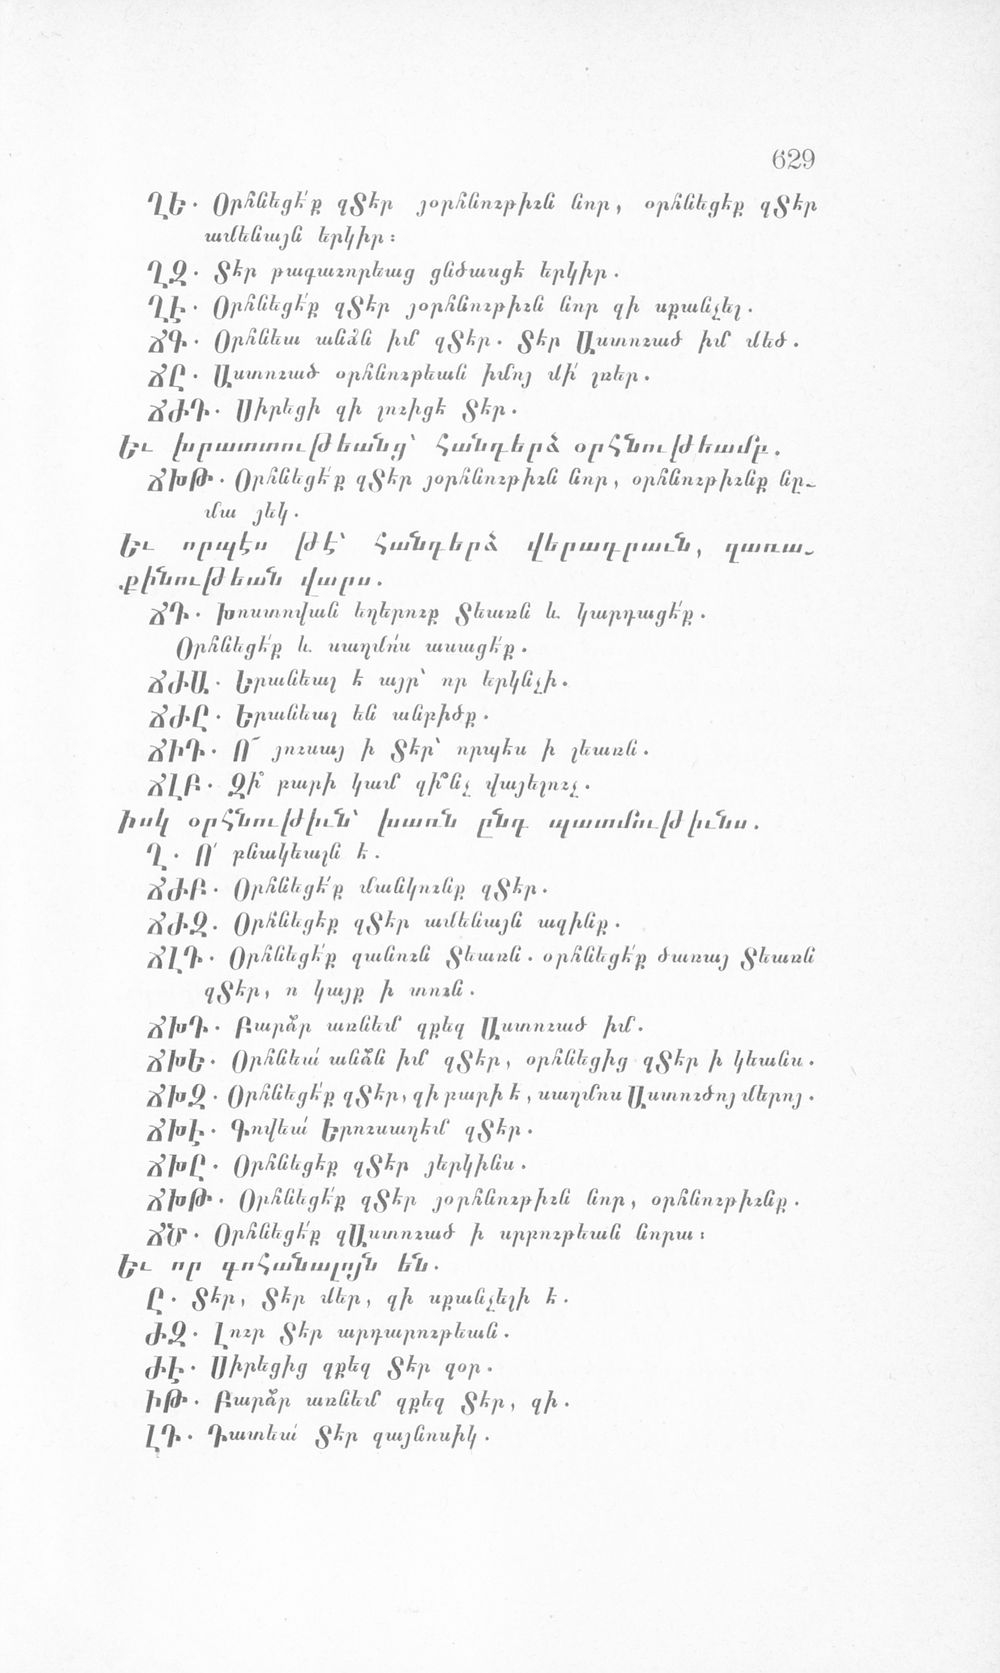 629
ՂԵ. Օրհնեցէ՛ք զՏէր յօրհնութիւն նոր, օրհնեցէք զՏէր
ամենայն երկիր։
ՂԶ. Տէր թագաւորեաց ցնծասցէ երկիր.
ՂԷ. Օրհնեցէ՛ք զՏէր յօրհնութիւն նոր զի սքանչել.
ՃԳ. Օրհնեա անձն իմ զՏէր. Տէր Աստուած իմ մեծ.
ՃԸ. Աստուած օրհնութեան իմոյ մի՛ լռեր.
ՃԺԴ. Սիրեցի զի լուիցէ Տէր.
Եւ խրատտութեանց՝ հանդերձ օրհնութեամբ.
ՃԽԹ. Օրհնեցէ՛ք զՏէր յօրհնութիւն նոր, օրհնութիւնք նը-
մա յեկ.
Եւ որպէս թէ՝ հանդերձ վերադրաւն, զառա-
քինութեան վարս.
ՃԴ. Խոստովան եղերուք Տեառն և կարդացէ՛ք.
Օրհնեցէ՛ք և սաղմո՛ս ասացէ՛ք.
ՃԺԱ. Երանեալ է այր՝ որ երկնչի.
ՃԺԸ. Երանեալ են անբիծք.
ՃԻԴ. Ո՜ յուսայ ի Տէր՝ որպէս ի լեառն.
ՃԼԲ. Զի՞ բարի կամ զի՞նչ վայելուչ.
Իսկ օրհնութիւն՝ խառն ընդ պատմութիւնս.
Ղ. Ո՛ բնակեալն է.
ՃԺԲ. Օրհնեցէ՛ք մանկունք զՏէր.
ՃԺԶ. Օրհնեցէք զՏէր ամենայն ազինք.
ՃԼԴ. Օրհնեցէ՛ք զանուն Տեառն. օրհնեցէ՛ք ծառայ Տեառն
զՏէր, ո կայք ի տուն.
ՃԽԴ. Բարձր առնեմ զքեզ Աստուած իմ.
ՃԽԵ. Օրհնեա՛ անձն իմ զՏէր, օրհնեցից զՏէր ի կեանս.
ՃԽԶ. Օրհնեցէ՛ք զՏէր, զի բարի է, սաղմոս Աստուծոյ մերոյ.
ՃԽԷ. Գովեա՛ Երուսաղէմ զՏէր.
ՃԽԸ. Օրհնեցէք զՏէր յերկինս.
ՃԽԹ. Օրհնեցէ՛ք զՏէր յօրհնութիւն նոր, օրհնութիւնք.
ՃԾ. Օրհնեցէ՛ք զԱստուած ի սրբութեան նորա։
Եւ որ գոհանալոյն են.
Ը. Տէր, Տէր մեր, զի սքանչելի է.
ԺԶ. Լուր Տէր արդարութեան.
ԺԷ. Սիրեցից զքեզ Տէր զօր.
ԻԹ. Բարձր առնեմ զքեզ Տէր, զի.
ԼԴ. Դատեա՛ Տէր զայնոսիկ.